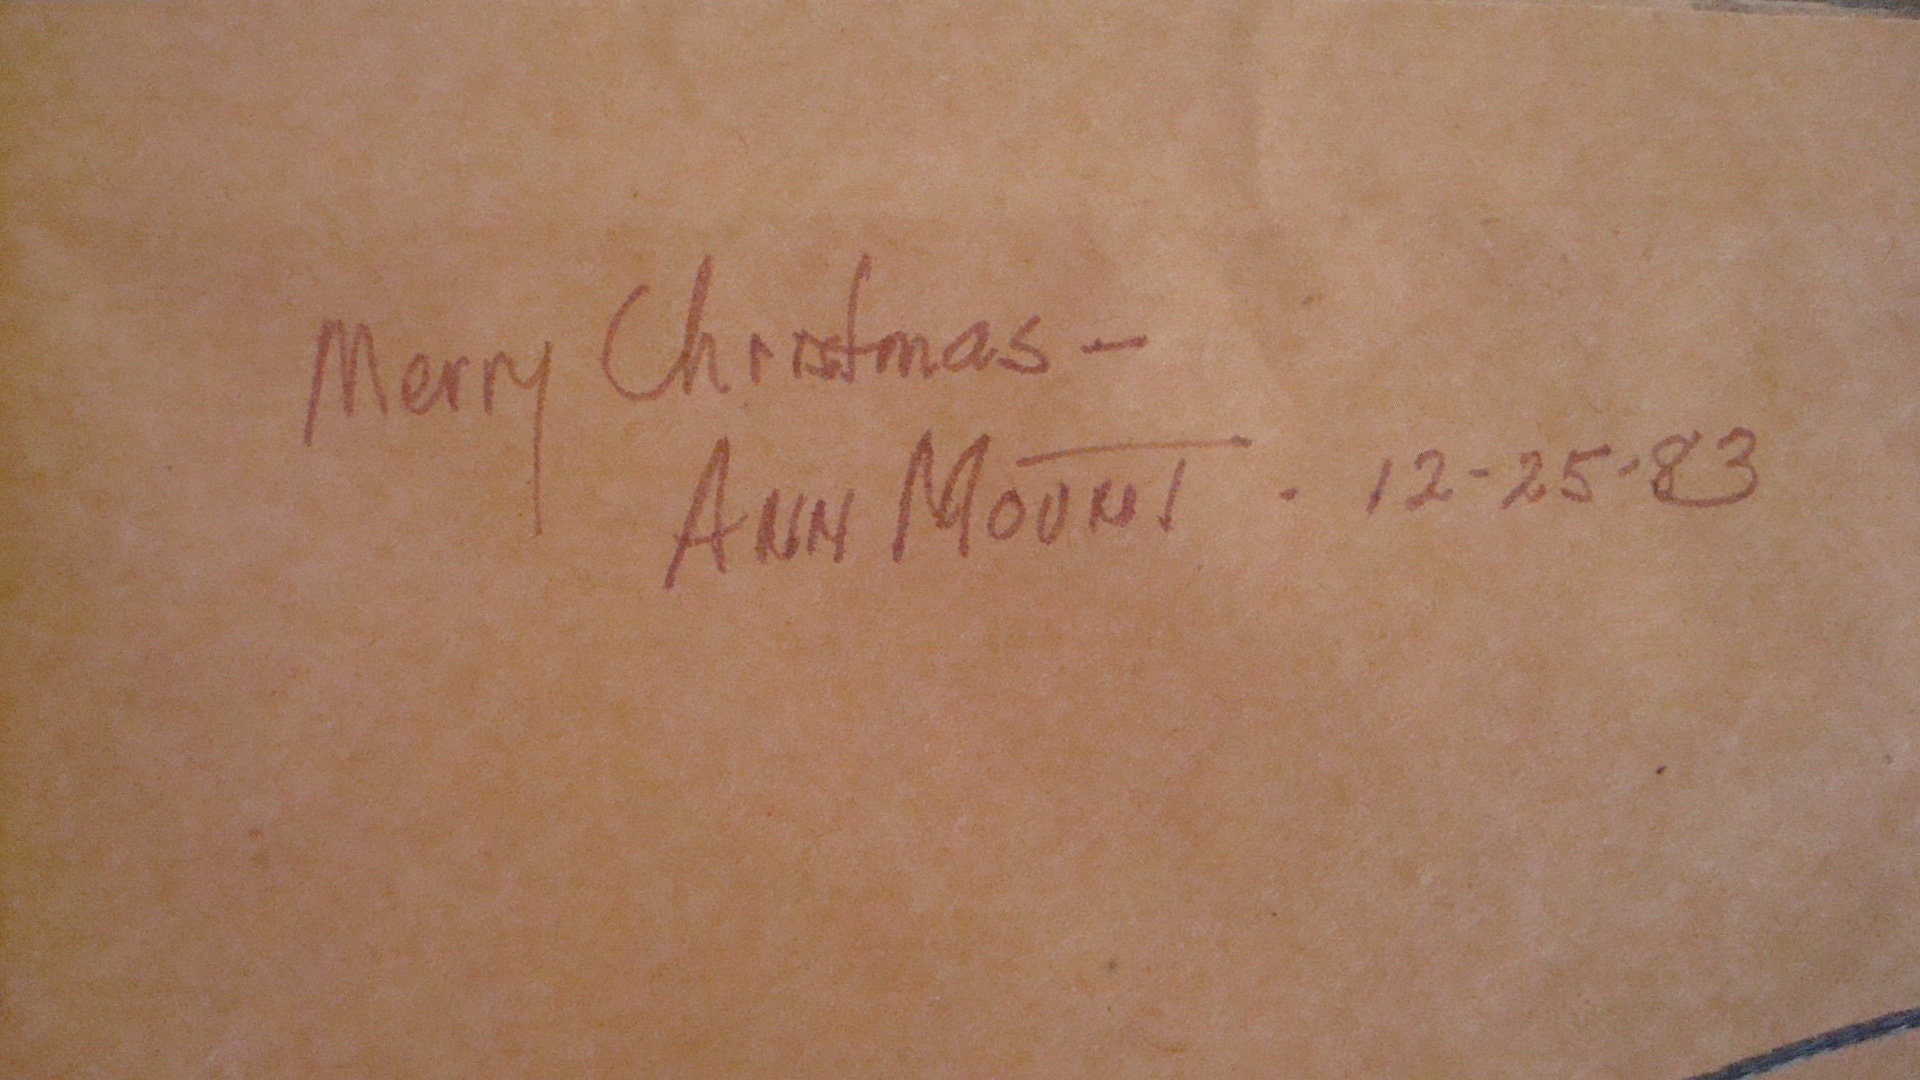 Merry Christmas -
ANN MOUNT . 12-25-83